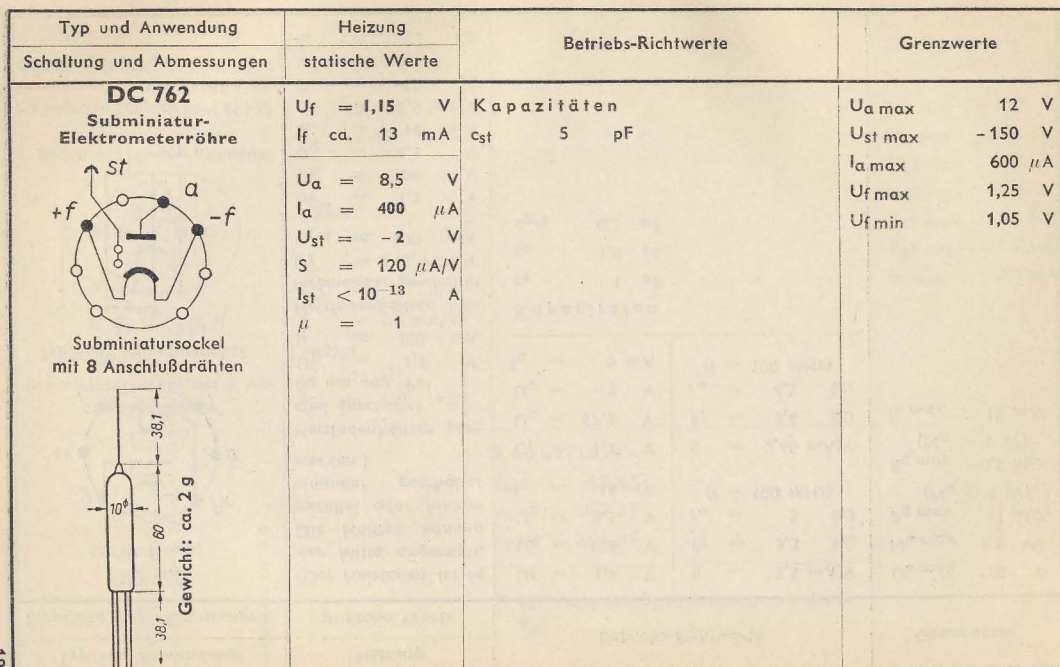 Typ und Anwendung
Schaltung und Abmessungen
Heizung
statische Werte
Betriebs-Richtwerte
Grenzwerte
DC 762
Subminiatur-
Elektrometerröhre
st
a
+f
-f
Subminiatursockel
mit 8 Anschlußdrähten
38,1
10ᶲ
60
38,1
Gewicht: ca. 2 g
Uf = 1,15 V
If ca. 13 mA
Ua = 8,5 V
Ia = 400 µA
Ust = -2 V
S = 120 µA/V
Ist < 10⁻¹³ A
µ = 1
Kapazitäten
cst 5 pF
Ua max 12 V
Ust max -150 V
Ia max 600 µA
Uf max 1,25 V
Uf min 1,05 V